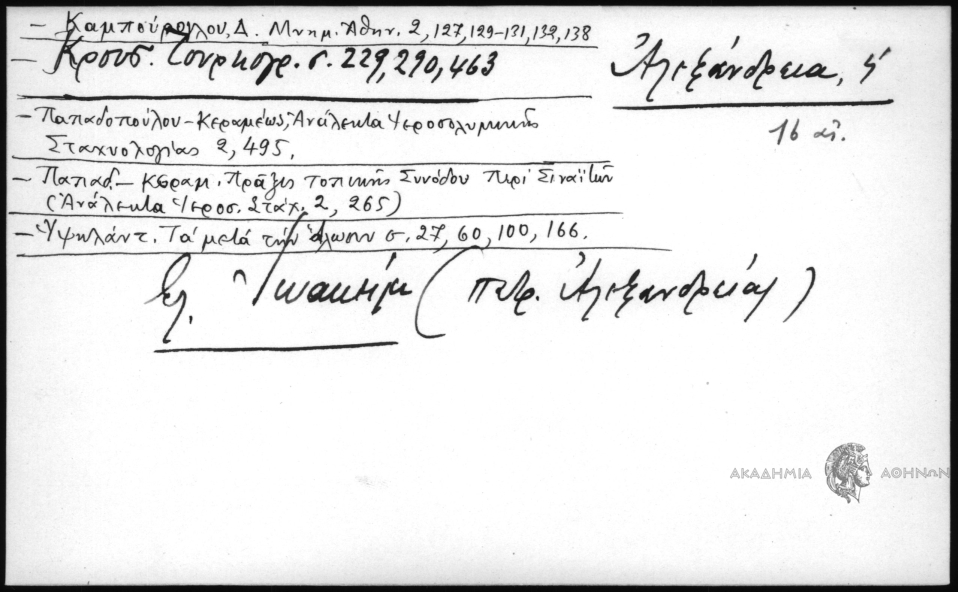 – Καμπούρογλου, Δ. Μνημ. Ἀθην. 2, 127, 129-131, 132, 138
– Κρουσ. Τουρκογρ. σ. 229, 290, 463
Ἀλεξάνδρεια, ϛ
16 αἰ.
– Παπαδοπούλου-Κεραμέως, Ἀνάλεκτα Ἱεροσολυμιτικῆς
Σταχυολογίας 2, 495.
– Παπαδ.-Κεραμ. Πρᾶξις τοπικῆς Συνόδου περί Σιναϊτῶν
(Ἀνάλεκτα Ἱεροσ. Στάχ. 2, 265)
– Ὑψηλάντ. Τά μετά τήν Ἅλωσιν σ. 27, 60, 100, 166.
Βλ. Ἰωακείμ (πατρ. Ἀλεξανδρείας)
ΑΚΑΔΗΜΙΑ ΑΘΗΝΩΝ